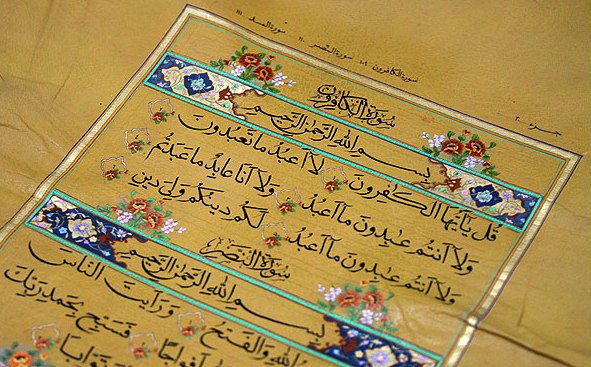 جزء ٣٠
سورة الكافرون ١٠٩ سورة النصر ١١٠ سورة المسد ١١١
سورة الكافرون
بسم الله الرحمن الرحيم
قل يأيها الكفرون لا أعبد ما تعبدون
ولا أنتم عبدون ما أعبد ولا أنا عابد ما عبدتم
ولا أنتم عبدون ما أعبد لكم دينكم ولي دين
سورة النصر
بسم الله الرحمن الرحيم
الله والفتح ورأيت الناس
أفواجا فسبح بحمد ربك
توابا